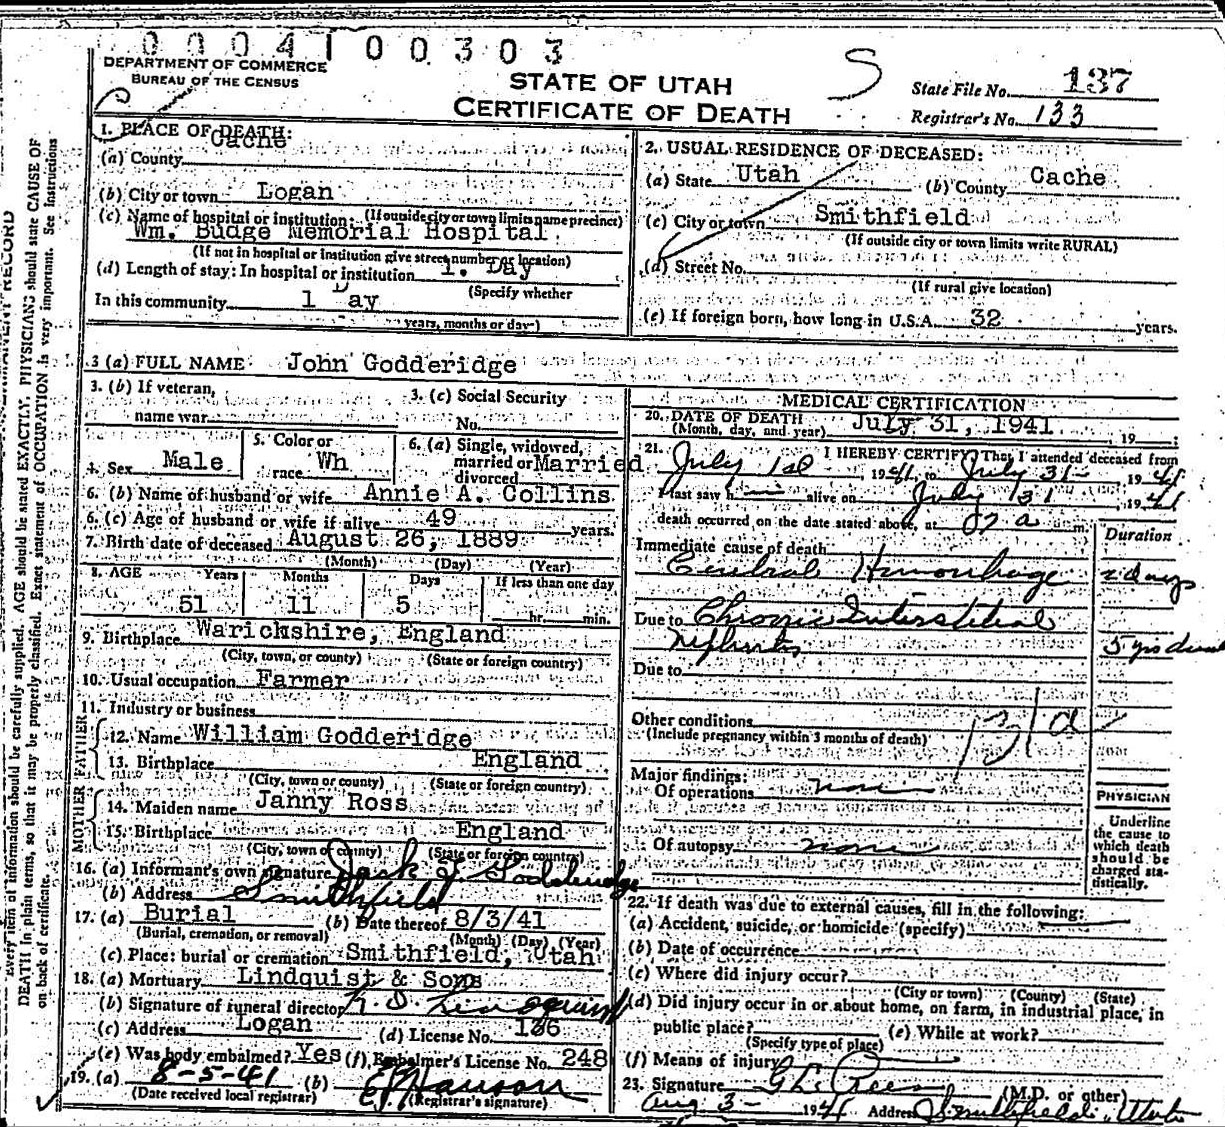 0004100303
DEPARTMENT OF COMMERCE
BUREAU OF THE CENSUS
STATE OF UTAH
CERTIFICATE OF DEATH
S
State File No. 137
Registrar's No. 133
1. PLACE OF DEATH:
(a) County Cache
(b) City or town Logan
(c) Name of hospital or institution: (If outside city or town limits name precinct)
Wm. Budge Memorial Hospital
(If not in hospital or institution give street number or location)
(d) Length of stay: In hospital or institution 1. Day
(Specify whether
In this community 1 Day
years, months or days)
2. USUAL RESIDENCE OF DECEASED:
(a) State Utah (b) County Cache
(c) City or town Smithfield
(If outside city or town limits write RURAL)
(d) Street No.
(If rural give location)
(e) If foreign born, how long in U.S.A. 32 years.
3 (a) FULL NAME John Godderidge
3. (b) If veteran, name war
3. (c) Social Security No.
4. Sex Male
5. Color or race Wh
6. (a) Single, widowed, married or divorced Married
6. (b) Name of husband or wife Annie A. Collins
6. (c) Age of husband or wife if alive 49 years.
7. Birth date of deceased August 26, 1889
(Month) (Day) (Year)
8. AGE Years Months Days If less than one day
51 11 5 hr. min.
9. Birthplace Warickshire, England
(City, town, or county) (State or foreign country)
10. Usual occupation Farmer
11. Industry or business
FATHER
12. Name William Godderidge
13. Birthplace England
(City, town or county) (State or foreign country)
MOTHER
14. Maiden name Janny Ross
15. Birthplace England
(City, town or county) (State or foreign country)
16. (a) Informant's own signature Jack J. Godderidge
(b) Address Smithfield
17. (a) Burial (b) Date thereof 8/3/41
(Burial, cremation, or removal) (Month) (Day) (Year)
(c) Place: burial or cremation Smithfield, Utah
18. (a) Mortuary Lindquist & Sons
(b) Signature of funeral director Lindquist
(c) Address Logan (d) License No. 136
(e) Was body embalmed? Yes (f) Embalmer's License No. 248
19. (a) 8-5-41 (b) Hanson
(Date received local registrar) (Registrar's signature)
MEDICAL CERTIFICATION
20. DATE OF DEATH July 31, 1941
(Month, day, and year) 19
21. I HEREBY CERTIFY That I attended deceased from
July 1st, 1941, to July 31, 1941
I last saw h alive on July 31, 1941
death occurred on the date stated above, at 07 a m.
Duration
Immediate cause of death
Cerebral Hemorrhage 2 days
Due to Chronic Interstitial
Nephritis 5 yrs
Due to
Other conditions
(Include pregnancy within 3 months of death)
131d
Major findings:
Of operations none
Of autopsy none
PHYSICIAN
Underline the cause to which death should be charged statistically.
22. If death was due to external causes, fill in the following:
(a) Accident, suicide, or homicide (specify)
(b) Date of occurrence
(c) Where did injury occur?
(City or town) (County) (State)
(d) Did injury occur in or about home, on farm, in industrial place, in
public place? (e) While at work?
(Specify type of place)
(f) Means of injury
23. Signature G L Rees (M.D. or other)
Aug 3 - 1941 Address Smithfield, Utah
Every item of information should be carefully supplied. AGE should be stated EXACTLY. PHYSICIANS should state CAUSE OF
DEATH in plain terms, so that it may be properly classified. Exact statement of OCCUPATION is very important. See instructions
on back of certificate.